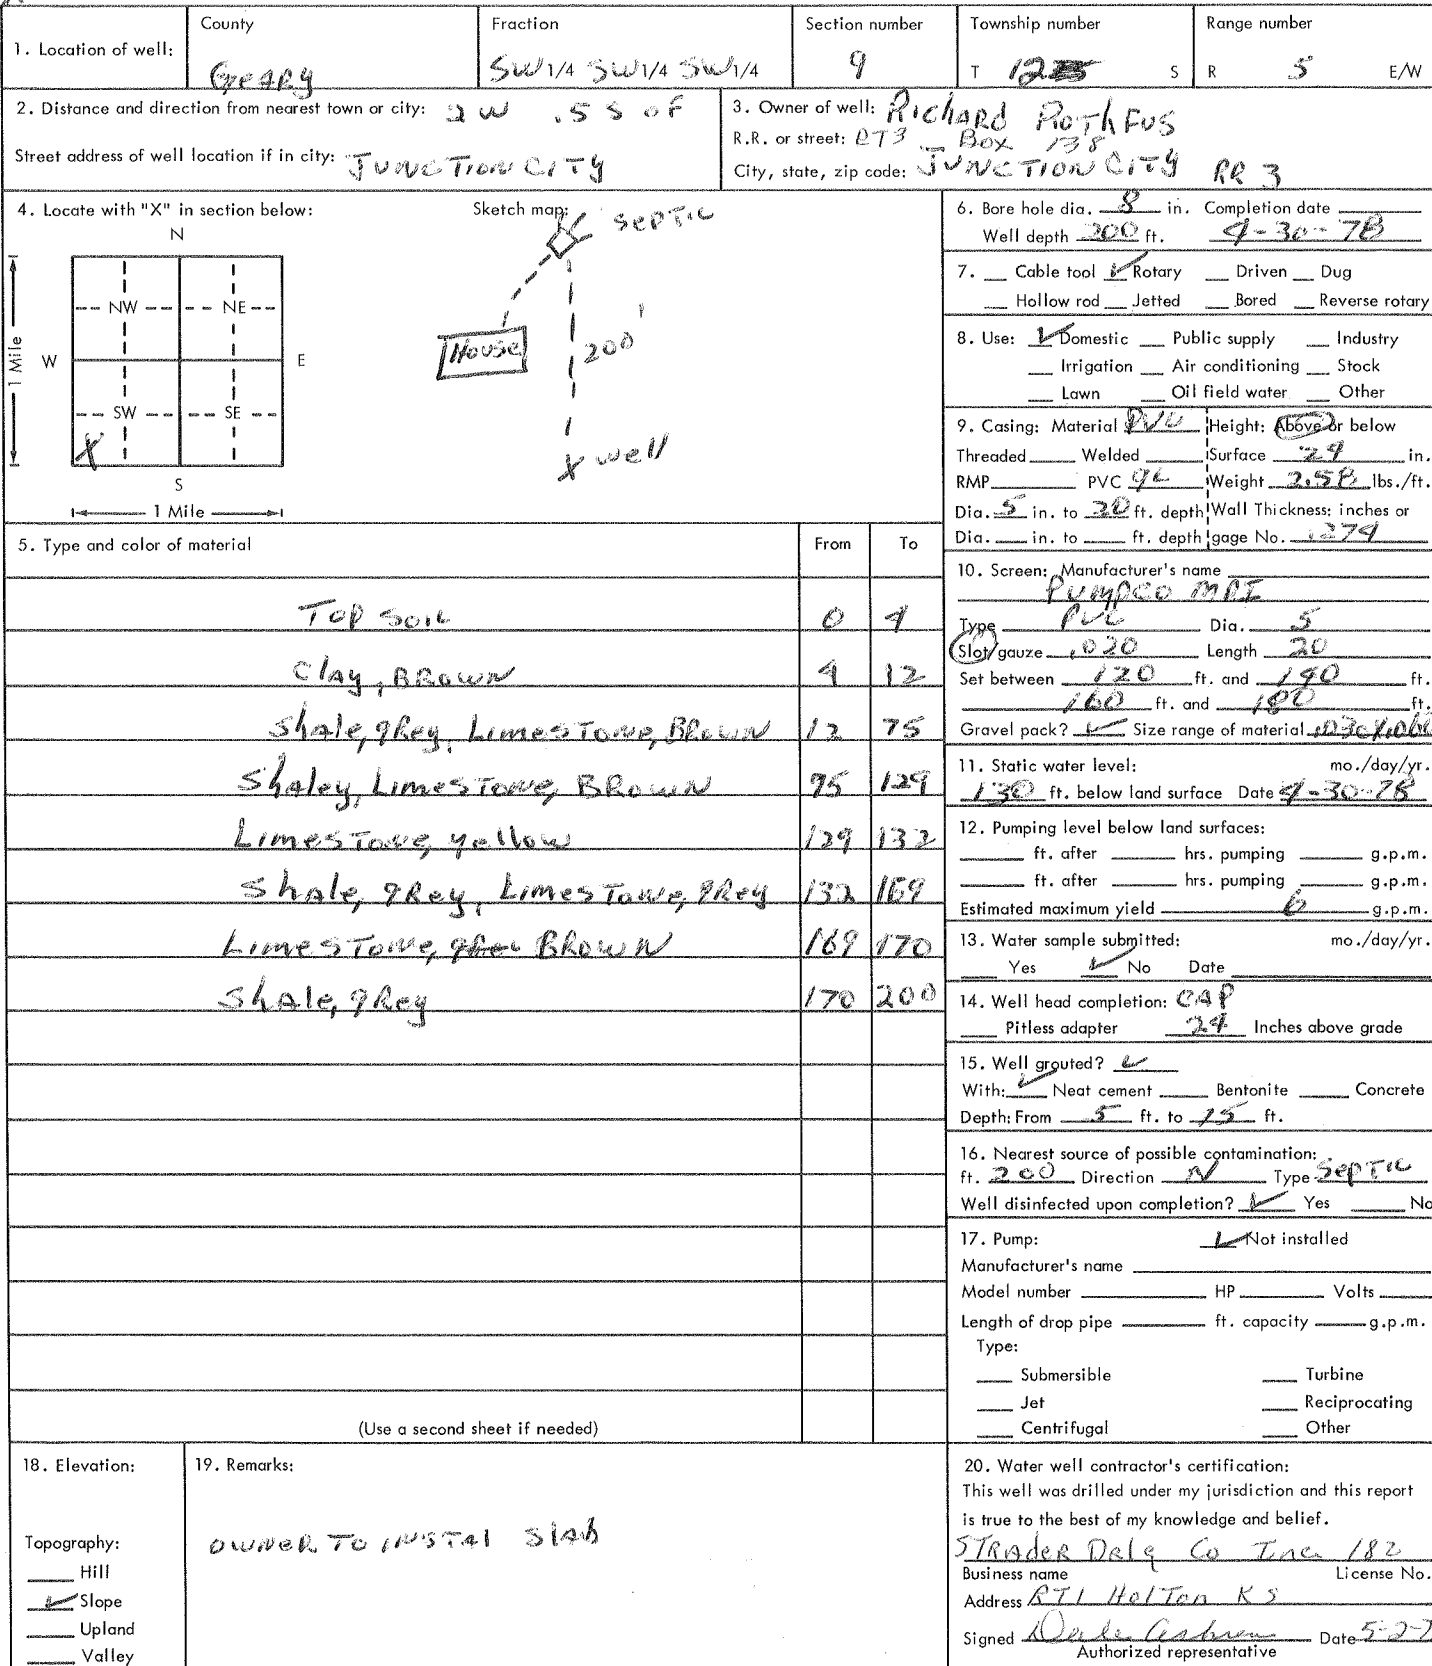 County
Fraction
Section number
Township number
Range number
1. Location of well:
Geary
SW 1/4 SW 1/4 SW 1/4
9
T 12 S
R 5 E/W
2. Distance and direction from nearest town or city: 2 W .5 S of
Street address of well location if in city: Junction City
3. Owner of well: Richard Rothfus
R.R. or street: RT3 Box 138
City, state, zip code: Junction City RR 3
4. Locate with "X" in section below:
Sketch map:
N
NW NE
W E
SW SE
X
S
1 Mile
1 Mile
septic
House
200'
X well
5. Type and color of material From To
Top Soil 0 4
Clay, Brown 4 12
Shale, grey, Limestone, Brown 12 75
Shaley, Limestone, Brown 75 129
Limestone, yellow 129 132
Shale, grey, Limestone, grey 132 169
Limestone, Brown 169 170
Shale, grey 170 200
(Use a second sheet if needed)
6. Bore hole dia. 8 in. Completion date
Well depth 200 ft. 4-30-78
7. Cable tool ✓ Rotary Driven Dug
Hollow rod Jetted Bored Reverse rotary
8. Use: ✓ Domestic Public supply Industry
Irrigation Air conditioning Stock
Lawn Oil field water Other
9. Casing: Material PVC Height: Above or below
Threaded Welded Surface 24 in.
RMP PVC Weight 2.58 lbs./ft.
Dia. 5 in. to 20 ft. depth Wall Thickness: inches or
Dia. in. to ft. depth gage No. .274
10. Screen: Manufacturer's name
Pumpco MPI
Type PVC Dia. 5
Slot/gauze .020 Length 20
Set between 120 ft. and 140 ft.
160 ft. and 180 ft.
Gravel pack? ✓ Size range of material
11. Static water level: mo./day/yr.
130 ft. below land surface Date 4-30-78
12. Pumping level below land surfaces:
ft. after hrs. pumping g.p.m.
ft. after hrs. pumping g.p.m.
Estimated maximum yield 6 g.p.m.
13. Water sample submitted: mo./day/yr.
Yes ✓ No Date
14. Well head completion: CAP
Pitless adapter 24 Inches above grade
15. Well grouted? ✓
With: ✓ Neat cement Bentonite Concrete
Depth: From 5 ft. to 15 ft.
16. Nearest source of possible contamination:
ft. 200 Direction N Type Septic
Well disinfected upon completion? ✓ Yes No
17. Pump: ✓ Not installed
Manufacturer's name
Model number HP Volts
Length of drop pipe ft. capacity g.p.m.
Type:
Submersible Turbine
Jet Reciprocating
Centrifugal Other
18. Elevation:
Topography:
Hill
✓ Slope
Upland
Valley
19. Remarks:
OWNER TO INSTAL Slab
20. Water well contractor's certification:
This well was drilled under my jurisdiction and this report
is true to the best of my knowledge and belief.
Strader Drlg Co Inc. 182
Business name License No.
Address RT1 Holton KS
Signed Dale Date 5-2-7
Authorized representative